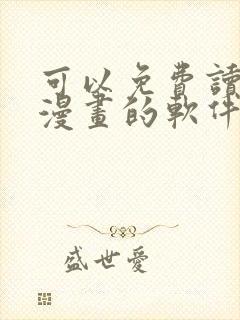 可以免費讀
漫畫的軟件
盛世愛